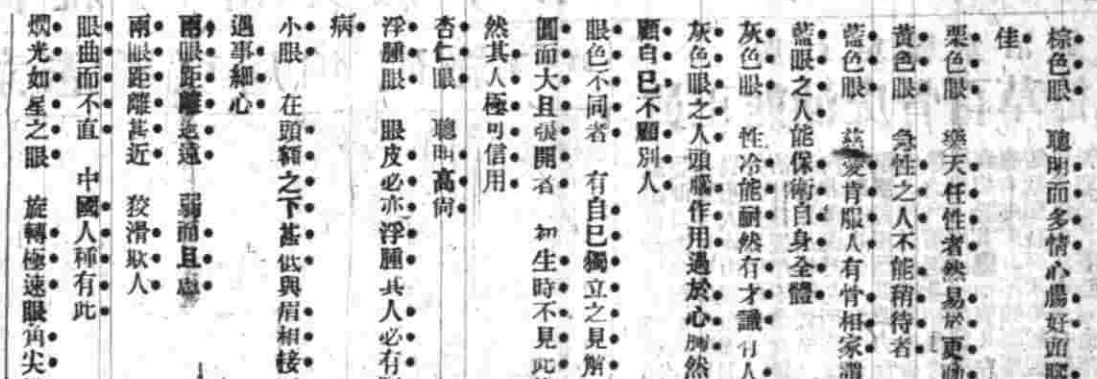 棕色眼 聰明而多情心腸好面
佳
栗色眼 樂天任性者然易於更動
黃色眼 急性之人不能稍待者
藍色眼 慈愛肯服人有骨相家謂
藍眼之人能保衛自身全體
灰色眼 性冷能耐然有才識有人
灰色眼之人頭 作用過於心 然
顧自己不顧別人
眼色不同者 有自己獨立之見解
圓而大且張開者 初生時不見此
然其人極可信用
杏仁眼 聰明高尚
浮腫眼 眼皮必亦浮腫其人必有
病
小眼 在頭額之下甚低與眉相接
遇事細心
兩眼距離遠 弱而且
兩眼距離甚近 狡滑欺人
眼曲而不直 中國人種有此
爛光如星之眼 旋轉極速眼角尖